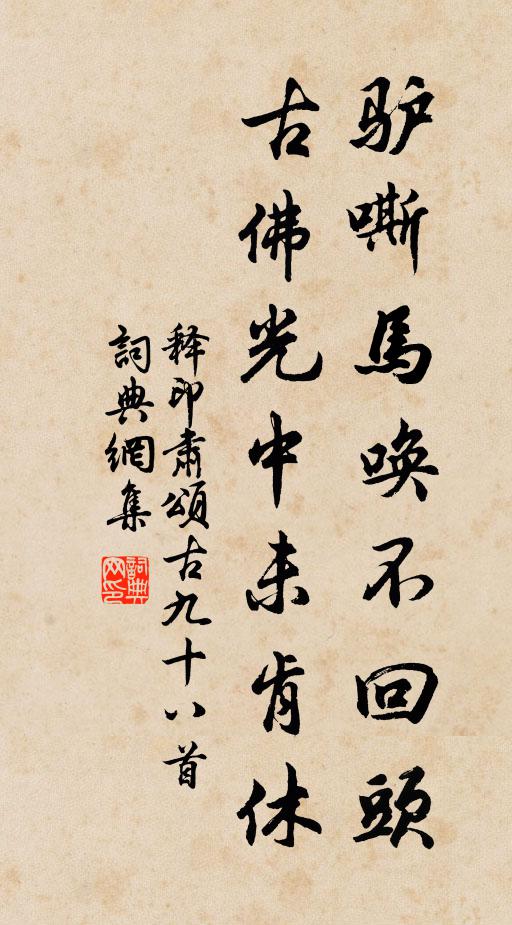 驴嘶馬唤不回頭
古佛光中未肯休
释印肅頌古九十八首
詞典網集
詞典网印